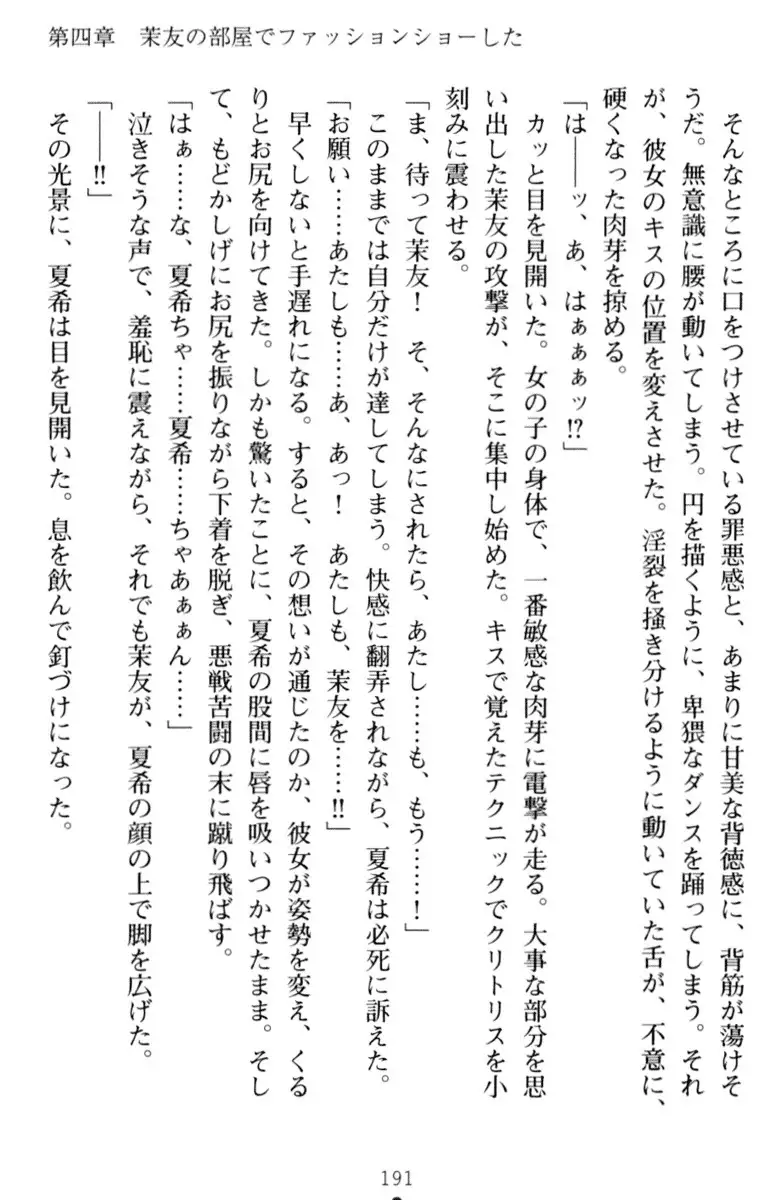 第四章　茉友の部屋でファッションショーした
そんなところに口をつけさせている罪悪感と、あまりに甘美な背徳感に、背筋が蕩けそ
うだ。無意識に腰が動いてしまう。円を描くように、卑猥なダンスを踊ってしまう。それ
が、彼女のキスの位置を変えさせた。淫裂を掻き分けるように動いていた舌が、不意に、
硬くなった肉芽を掠める。
「は――ッ、あ、はぁぁぁッ⁉」
カッと目を見開いた。女の子の身体で、一番敏感な肉芽に電撃が走る。大事な部分を思
い出した茉友の攻撃が、そこに集中し始めた。キスで覚えたテクニックでクリトリスを小
刻みに震わせる。
「ま、待って茉友！　そ、そんなにされたら、あたし……も、もう……！」
このままでは自分だけが達してしまう。快感に翻弄されながら、夏希は必死に訴えた。
「お願い……あたしも……あ、あっ！　あたしも、茉友を……‼」
早くしないと手遅れになる。すると、その想いが通じたのか、彼女が姿勢を変え、くる
りとお尻を向けてきた。しかも驚いたことに、夏希の股間に唇を吸いつかせたまま。そし
て、もどかしげにお尻を振りながら下着を脱ぎ、悪戦苦闘の末に蹴り飛ばす。
「はぁ……な、夏希ちゃ……夏希……ちゃあぁぁん……」
泣きそうな声で、羞恥に震えながら、それでも茉友が、夏希の顔の上で脚を広げた。
「――‼」
その光景に、夏希は目を見開いた。息を飲んで釘づけになった。
191